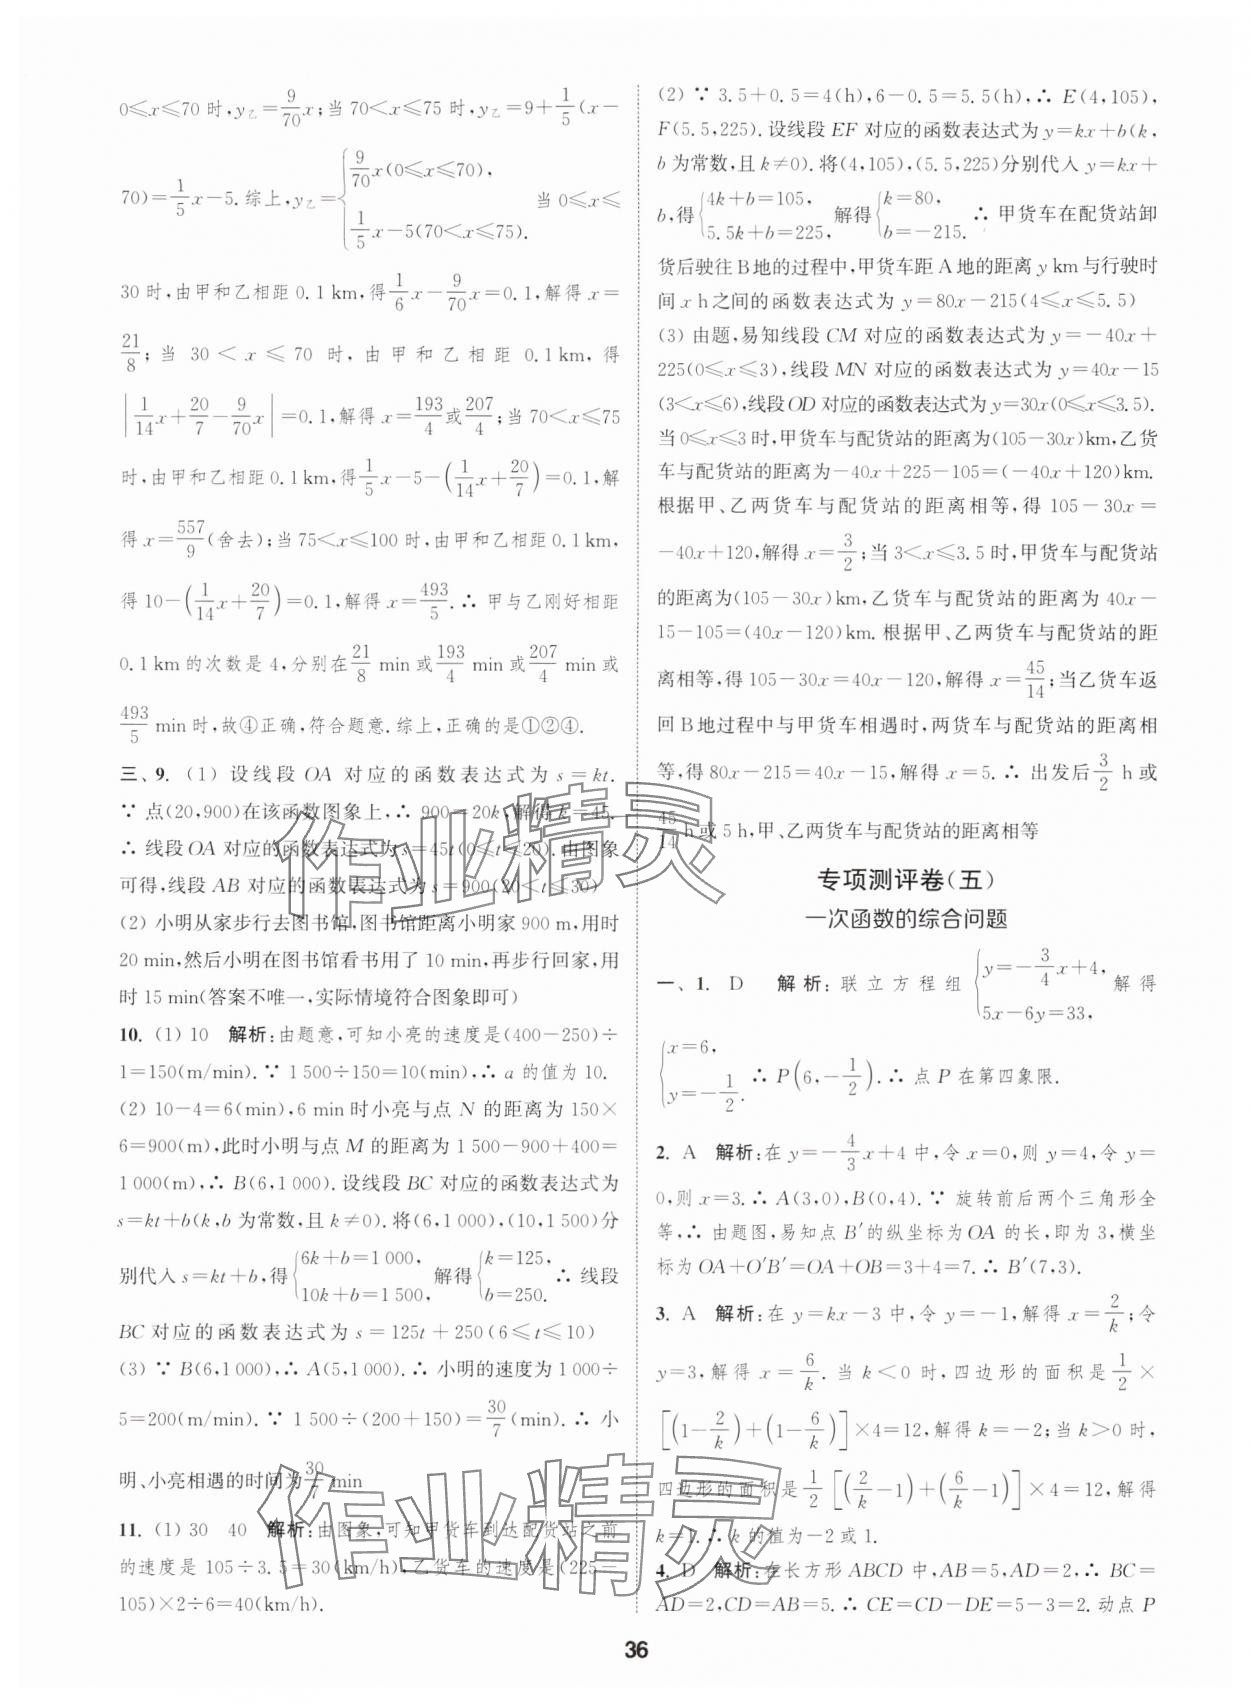 0≤x≤70 时,y乙=9/70x;当 70<x≤75 时,y乙=9+1/5(x-
70)=1/5x-5.综上,y乙={9/70x(0≤x≤70), 1/5x-5(70<x≤75). 当 0≤x≤
30 时,由甲和乙相距 0.1 km,得1/6x-9/70x=0.1,解得 x=
21/8;当 30<x≤70 时,由甲和乙相距 0.1 km,得
|1/14x+20/7-9/70x|=0.1,解得 x=193/4或207/4;当 70<x≤75
时,由甲和乙相距 0.1 km,得1/5x-5-(1/14x+20/7)=0.1,解
得 x=557/9(舍去);当 75<x≤100 时,由甲和乙相距 0.1 km,
得 10-(1/14x+20/7)=0.1,解得 x=493/5.∴ 甲与乙刚好相距
0.1 km 的次数是 4,分别在21/8 min 或193/4 min 或207/4 min 或
493/5 min 时,故④正确,符合题意.综上,正确的是①②④.
三、9.(1) 设线段 OA 对应的函数表达式为 s=kt.
∵ 点(20,900)在该函数图象上,∴ 900=20k,解得 k=45.
∴ 线段 OA 对应的函数表达式为 s=45t(0≤t≤20).由图象
可得,线段 AB 对应的函数表达式为 s=900(20<t≤30)
(2) 小明从家步行去图书馆,图书馆距离小明家 900 m,用时
20 min,然后小明在图书馆看书用了 10 min,再步行回家,用
时 15 min(答案不唯一,实际情境符合图象即可)
10.(1) 10 解析:由题意,可知小亮的速度是(400-250)÷
1=150(m/min).∵ 1 500÷150=10(min),∴ a 的值为 10.
(2) 10-4=6(min),6 min 时小亮与点 N 的距离为 150×
6=900(m),此时小明与点 M 的距离为 1 500-900+400=
1 000(m),∴ B(6,1 000).设线段 BC 对应的函数表达式为
s=kt+b(k,b 为常数,且 k≠0).将(6,1 000),(10,1 500)分
别代入 s=kt+b,得{6k+b=1 000, 10k+b=1 500, 解得{k=125, b=250. ∴ 线段
BC 对应的函数表达式为 s=125t+250(6≤t≤10)
(3) ∵ B(6,1 000),∴ A(5,1 000).∴ 小明的速度为 1 000÷
5=200(m/min).∵ 1 500÷(200+150)=30/7(min).∴ 小
明、小亮相遇的时间为30/7 min
11.(1) 30 40 解析:由图象,可知甲货车到达配货站之前
的速度是 105÷3.5=30(km/h),乙货车的速度是(225-
105)×2÷6=40(km/h).
(2) ∵ 3.5+0.5=4(h),6-0.5=5.5(h),∴ E(4,105),
F(5.5,225).设线段 EF 对应的函数表达式为 y=kx+b(k,
b 为常数,且 k≠0).将(4,105),(5.5,225)分别代入 y=kx+
b,得{4k+b=105, 5.5k+b=225, 解得{k=80, b=-215. ∴ 甲货车在配货站卸
货后驶往 B 地的过程中,甲货车距 A 地的距离 y km 与行驶时
间 x h 之间的函数表达式为 y=80x-215(4≤x≤5.5)
(3) 由题,易知线段 CM 对应的函数表达式为 y=-40x+
225(0≤x≤3),线段 MN 对应的函数表达式为 y=40x-15
(3<x≤6),线段 OD 对应的函数表达式为 y=30x(0≤x≤3.5).
当 0≤x≤3 时,甲货车与配货站的距离为(105-30x)km,乙货
车与配货站的距离为-40x+225-105=(-40x+120)km.
根据甲、乙两货车与配货站的距离相等,得 105-30x=
-40x+120,解得 x=3/2;当 3<x≤3.5 时,甲货车与配货站
的距离为(105-30x)km,乙货车与配货站的距离为 40x-
15-105=(40x-120)km.根据甲、乙两货车与配货站的距
离相等,得 105-30x=40x-120,解得 x=45/14;当乙货车返
回 B 地过程中与甲货车相遇时,两货车与配货站的距离相
等,得 80x-215=40x-15,解得 x=5.∴ 出发后3/2 h 或
45/14 h 或 5 h,甲、乙两货车与配货站的距离相等
专项测评卷(五)
一次函数的综合问题
一、1. D 解析:联立方程组{y=-3/4x+4, 5x-6y=33, 解得
{x=6, y=-1/2. ∴ P(6,-1/2).∴ 点 P 在第四象限.
2. A 解析:在 y=-4/3x+4 中,令 x=0,则 y=4,令 y=
0,则 x=3.∴ A(3,0),B(0,4).∵ 旋转前后两个三角形全
等,∴ 由题图,易知点 B′的纵坐标为 OA 的长,即为 3,横坐
标为 OA+O′B′=OA+OB=3+4=7.∴ B′(7,3).
3. A 解析:在 y=kx-3 中,令 y=-1,解得 x=2/k;令
y=3,解得 x=6/k.当 k<0 时,四边形的面积是1/2×
[(1-2/k)+(1-6/k)]×4=12,解得 k=-2;当 k>0 时,
四边形的面积是1/2[(2/k-1)+(6/k-1)]×4=12,解得
k=1.∴ k 的值为-2 或 1.
4. D 解析:在长方形 ABCD 中,AB=5,AD=2,∴ BC=
AD=2,CD=AB=5.∴ CE=CD-DE=5-3=2.动点 P
36
作业精灵
作业精灵